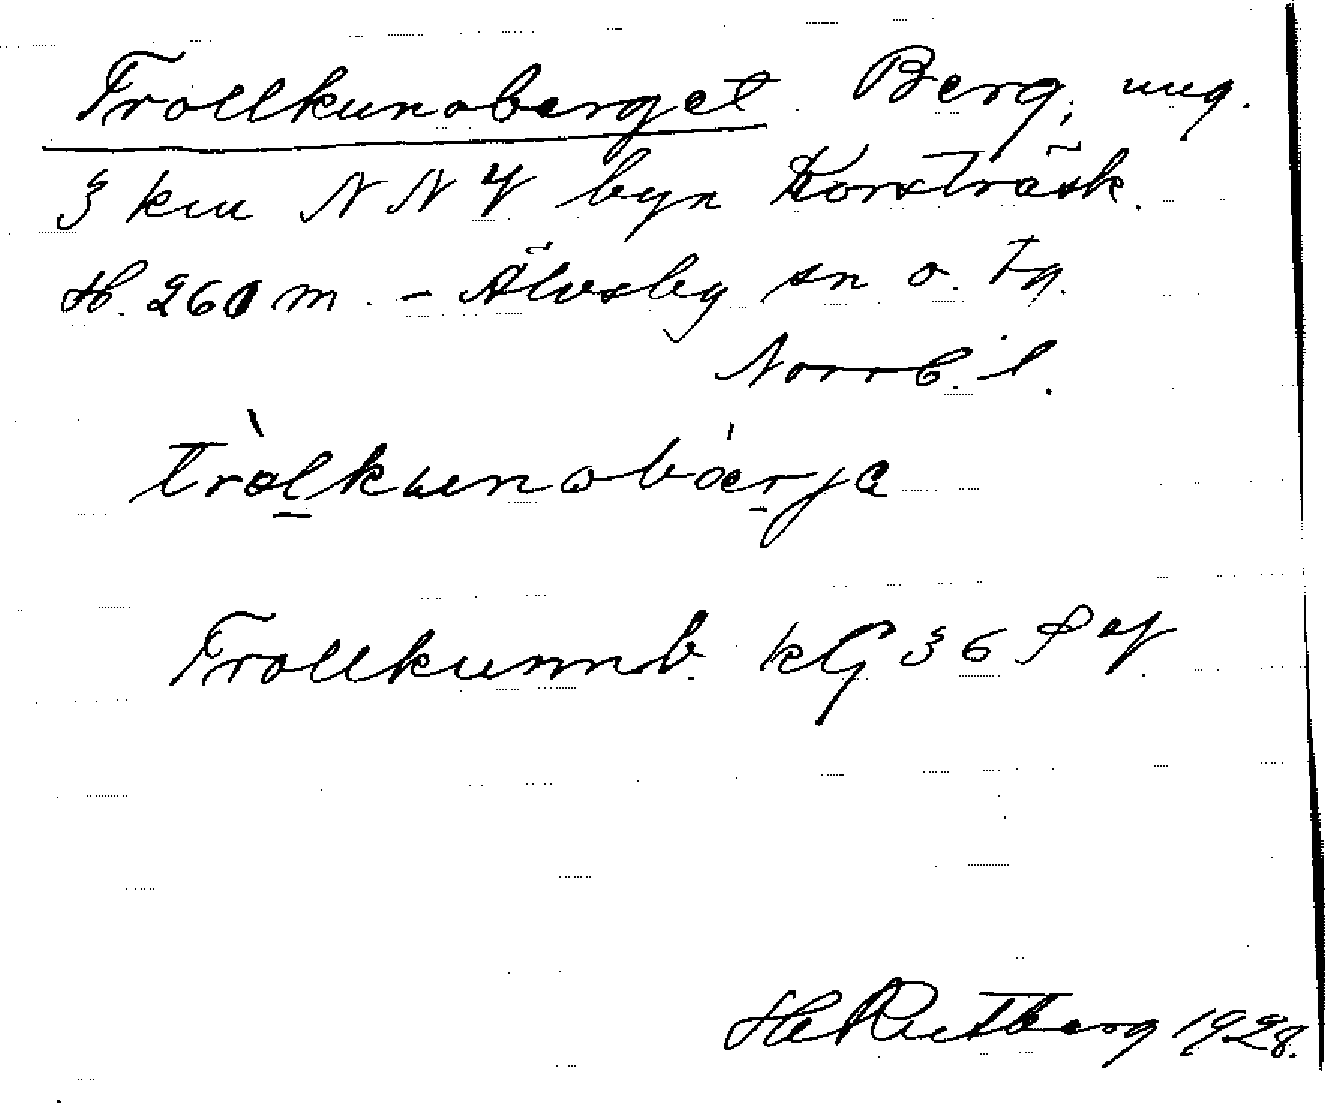 Trollkunaberget. Berg, ung.
3 km NNV byn Korsträsk.
H. 260 m. - Älvsby sn o. tg.
Norrb. l.
tròlkunabárja
Trollkunnb. kG 36
1928.